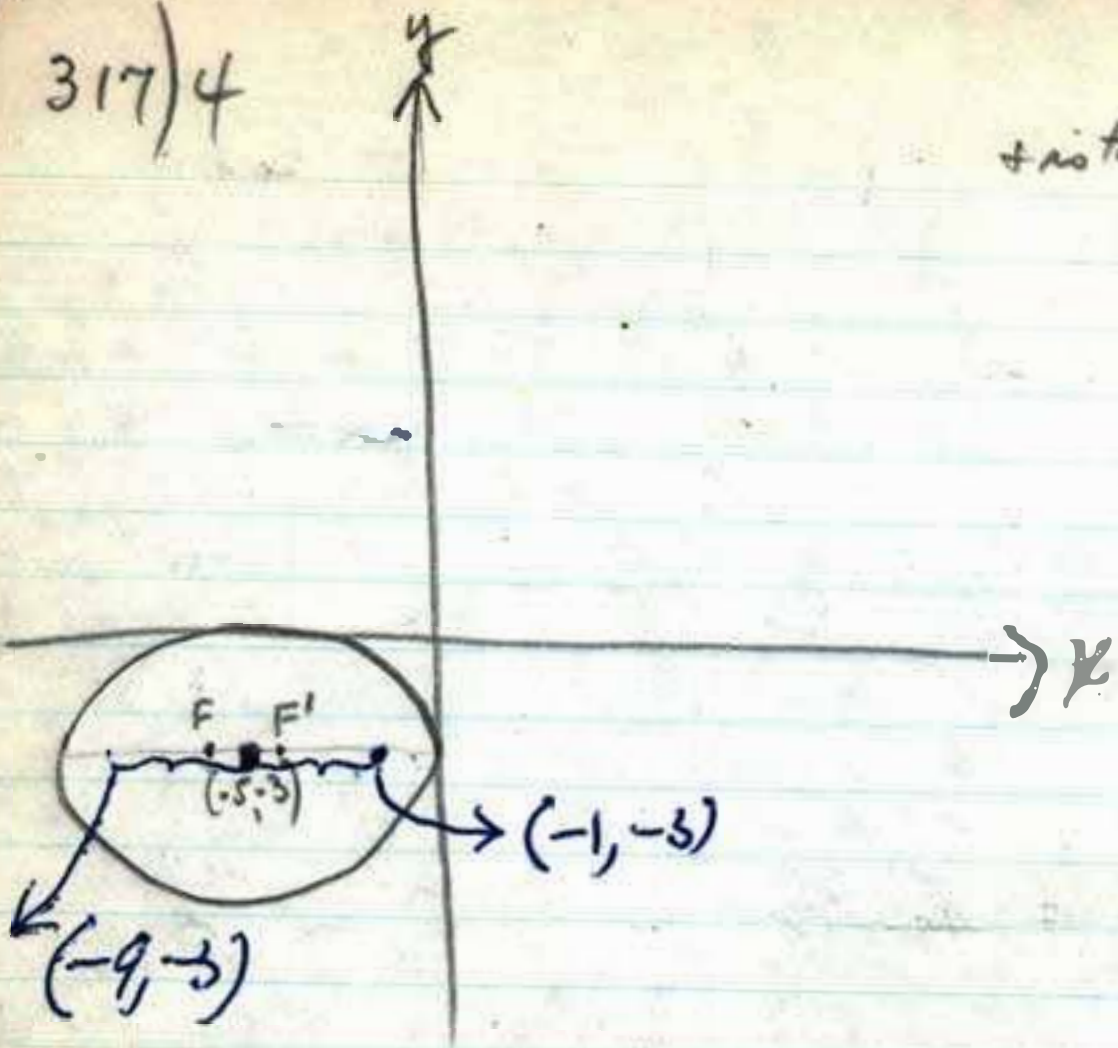 317) 4
y
x
F F'
(-5,-3)
(-1, -3)
(-9, -3)